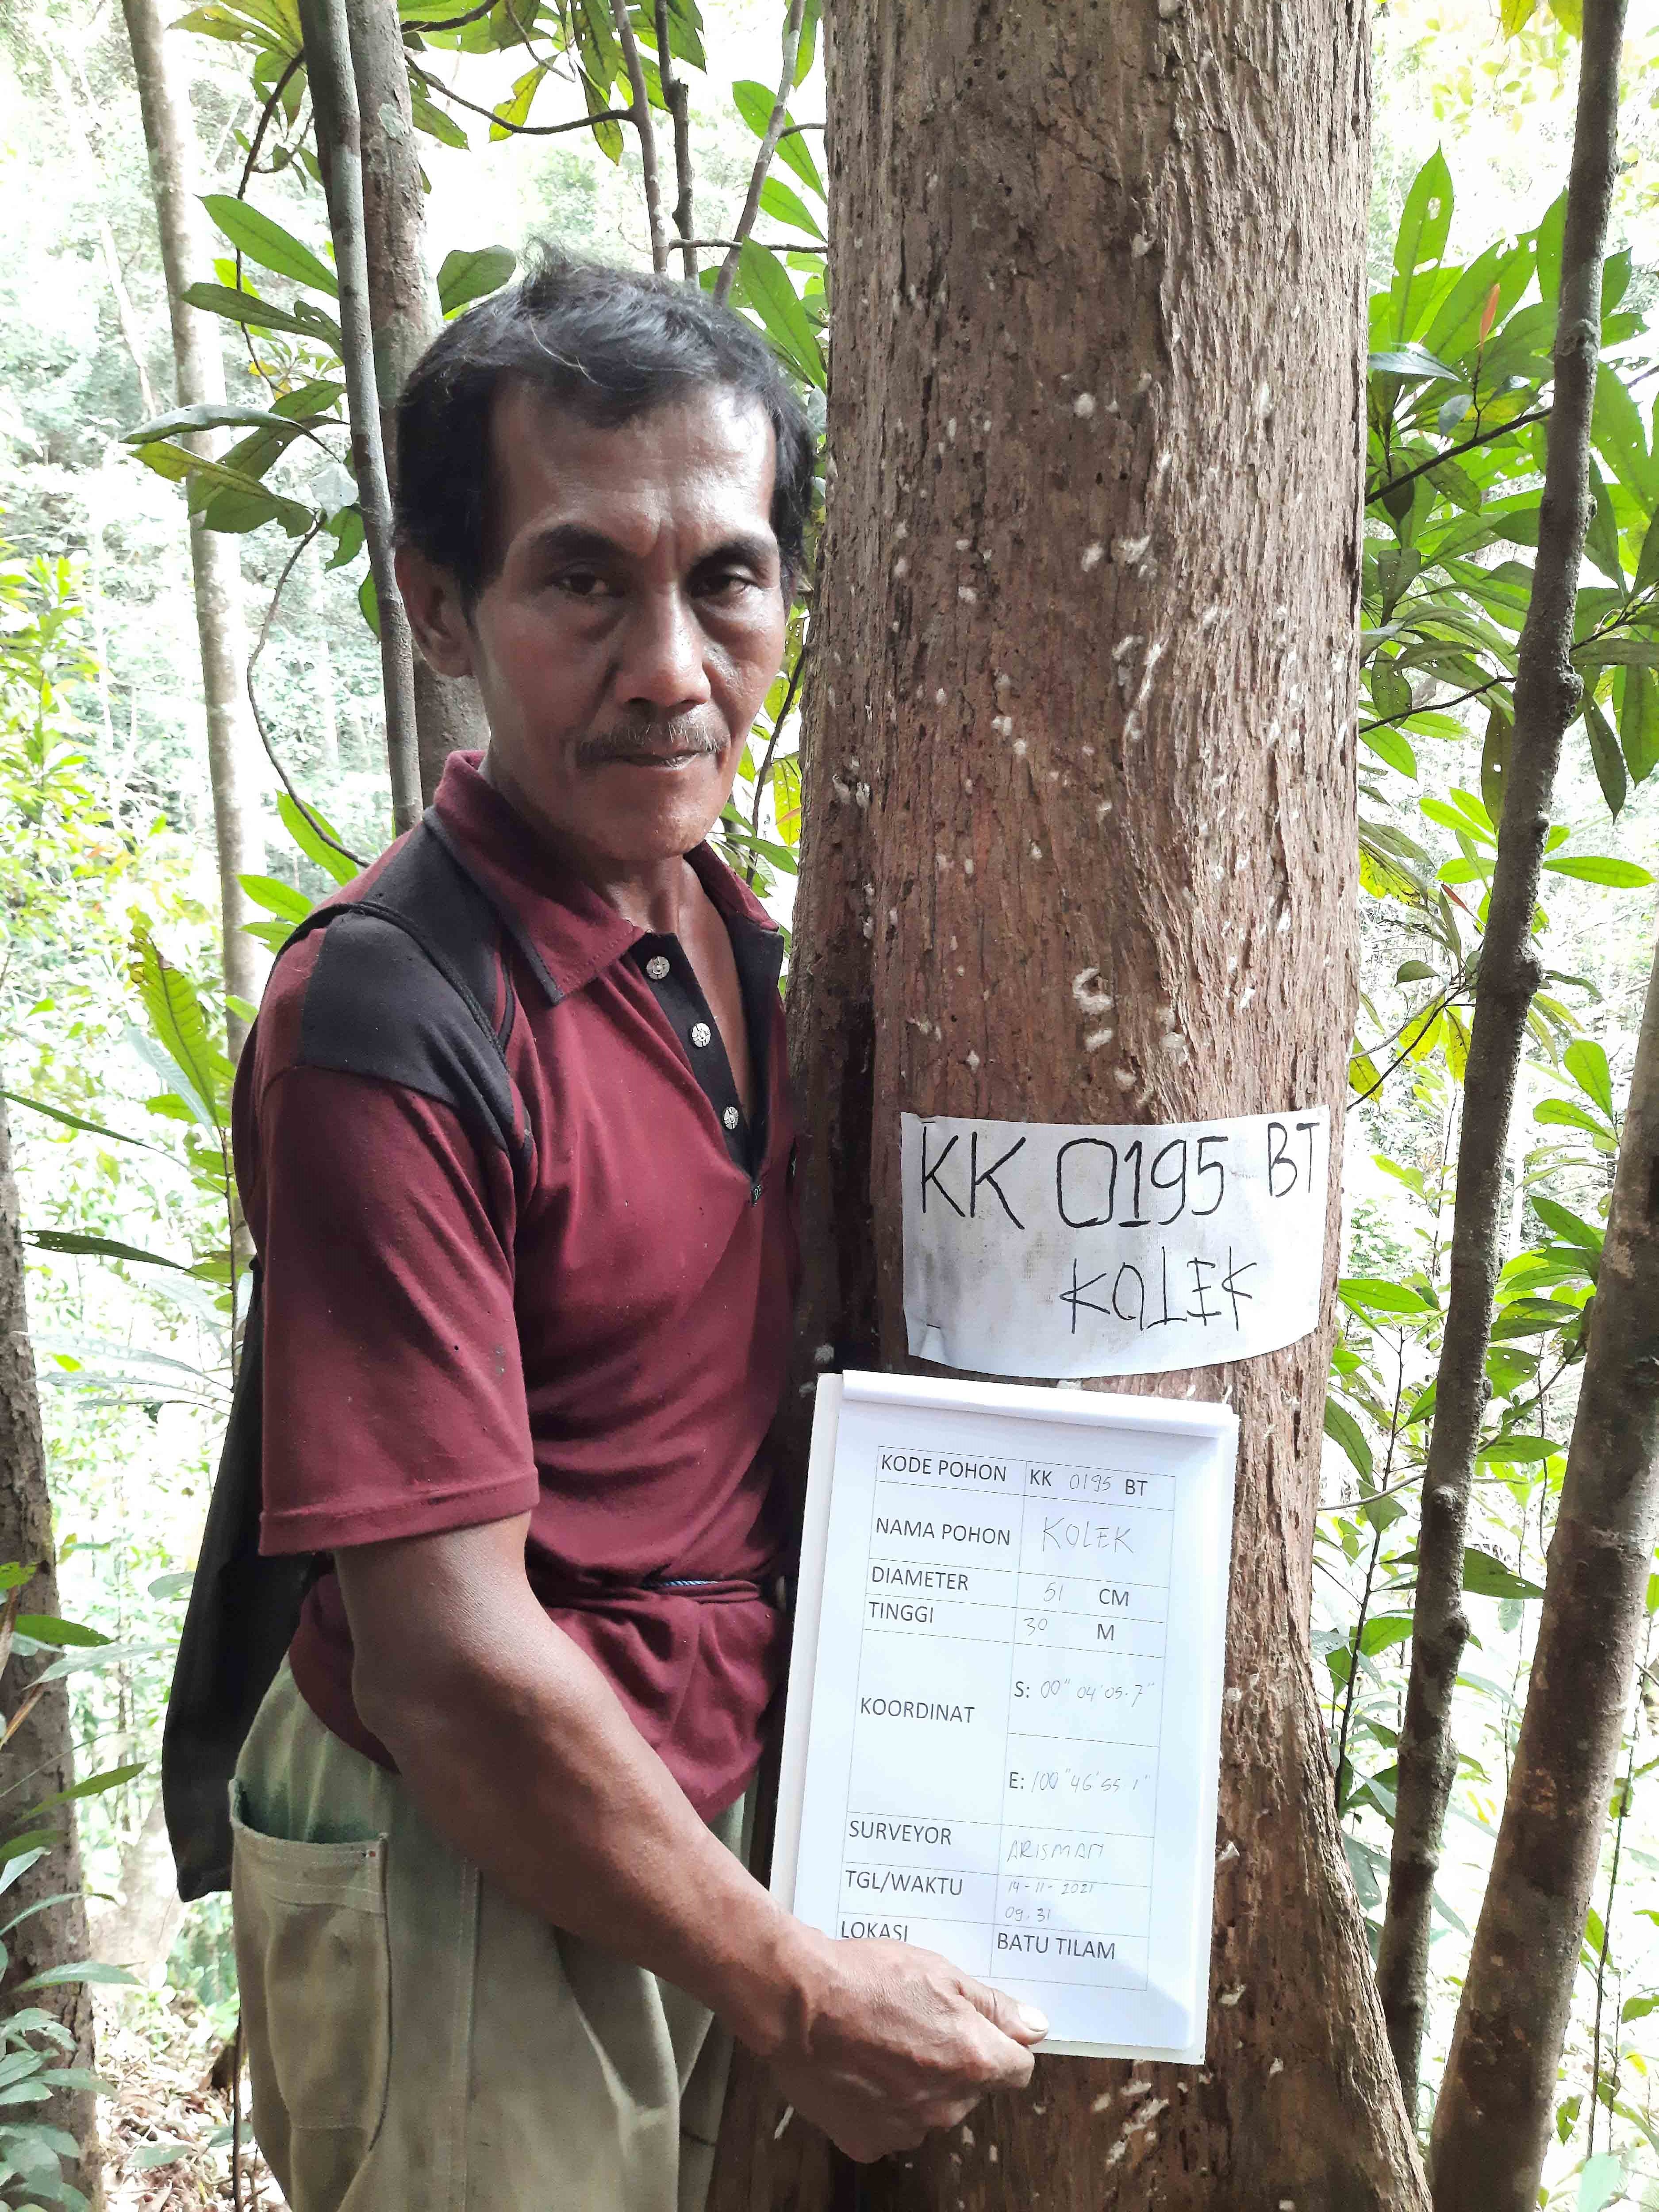 KK 0195 BT
KOLEK
KODE POHON KK 0195 BT
NAMA POHON KOLEK
DIAMETER 51 CM
TINGGI 30 M
KOORDINAT
S: 00" 04' 05.7"
E: 100" 46' 55 1"
SURVEYOR ARISMAN
TGL/WAKTU 14-11-2021
09.31
LOKASI BATU TILAM